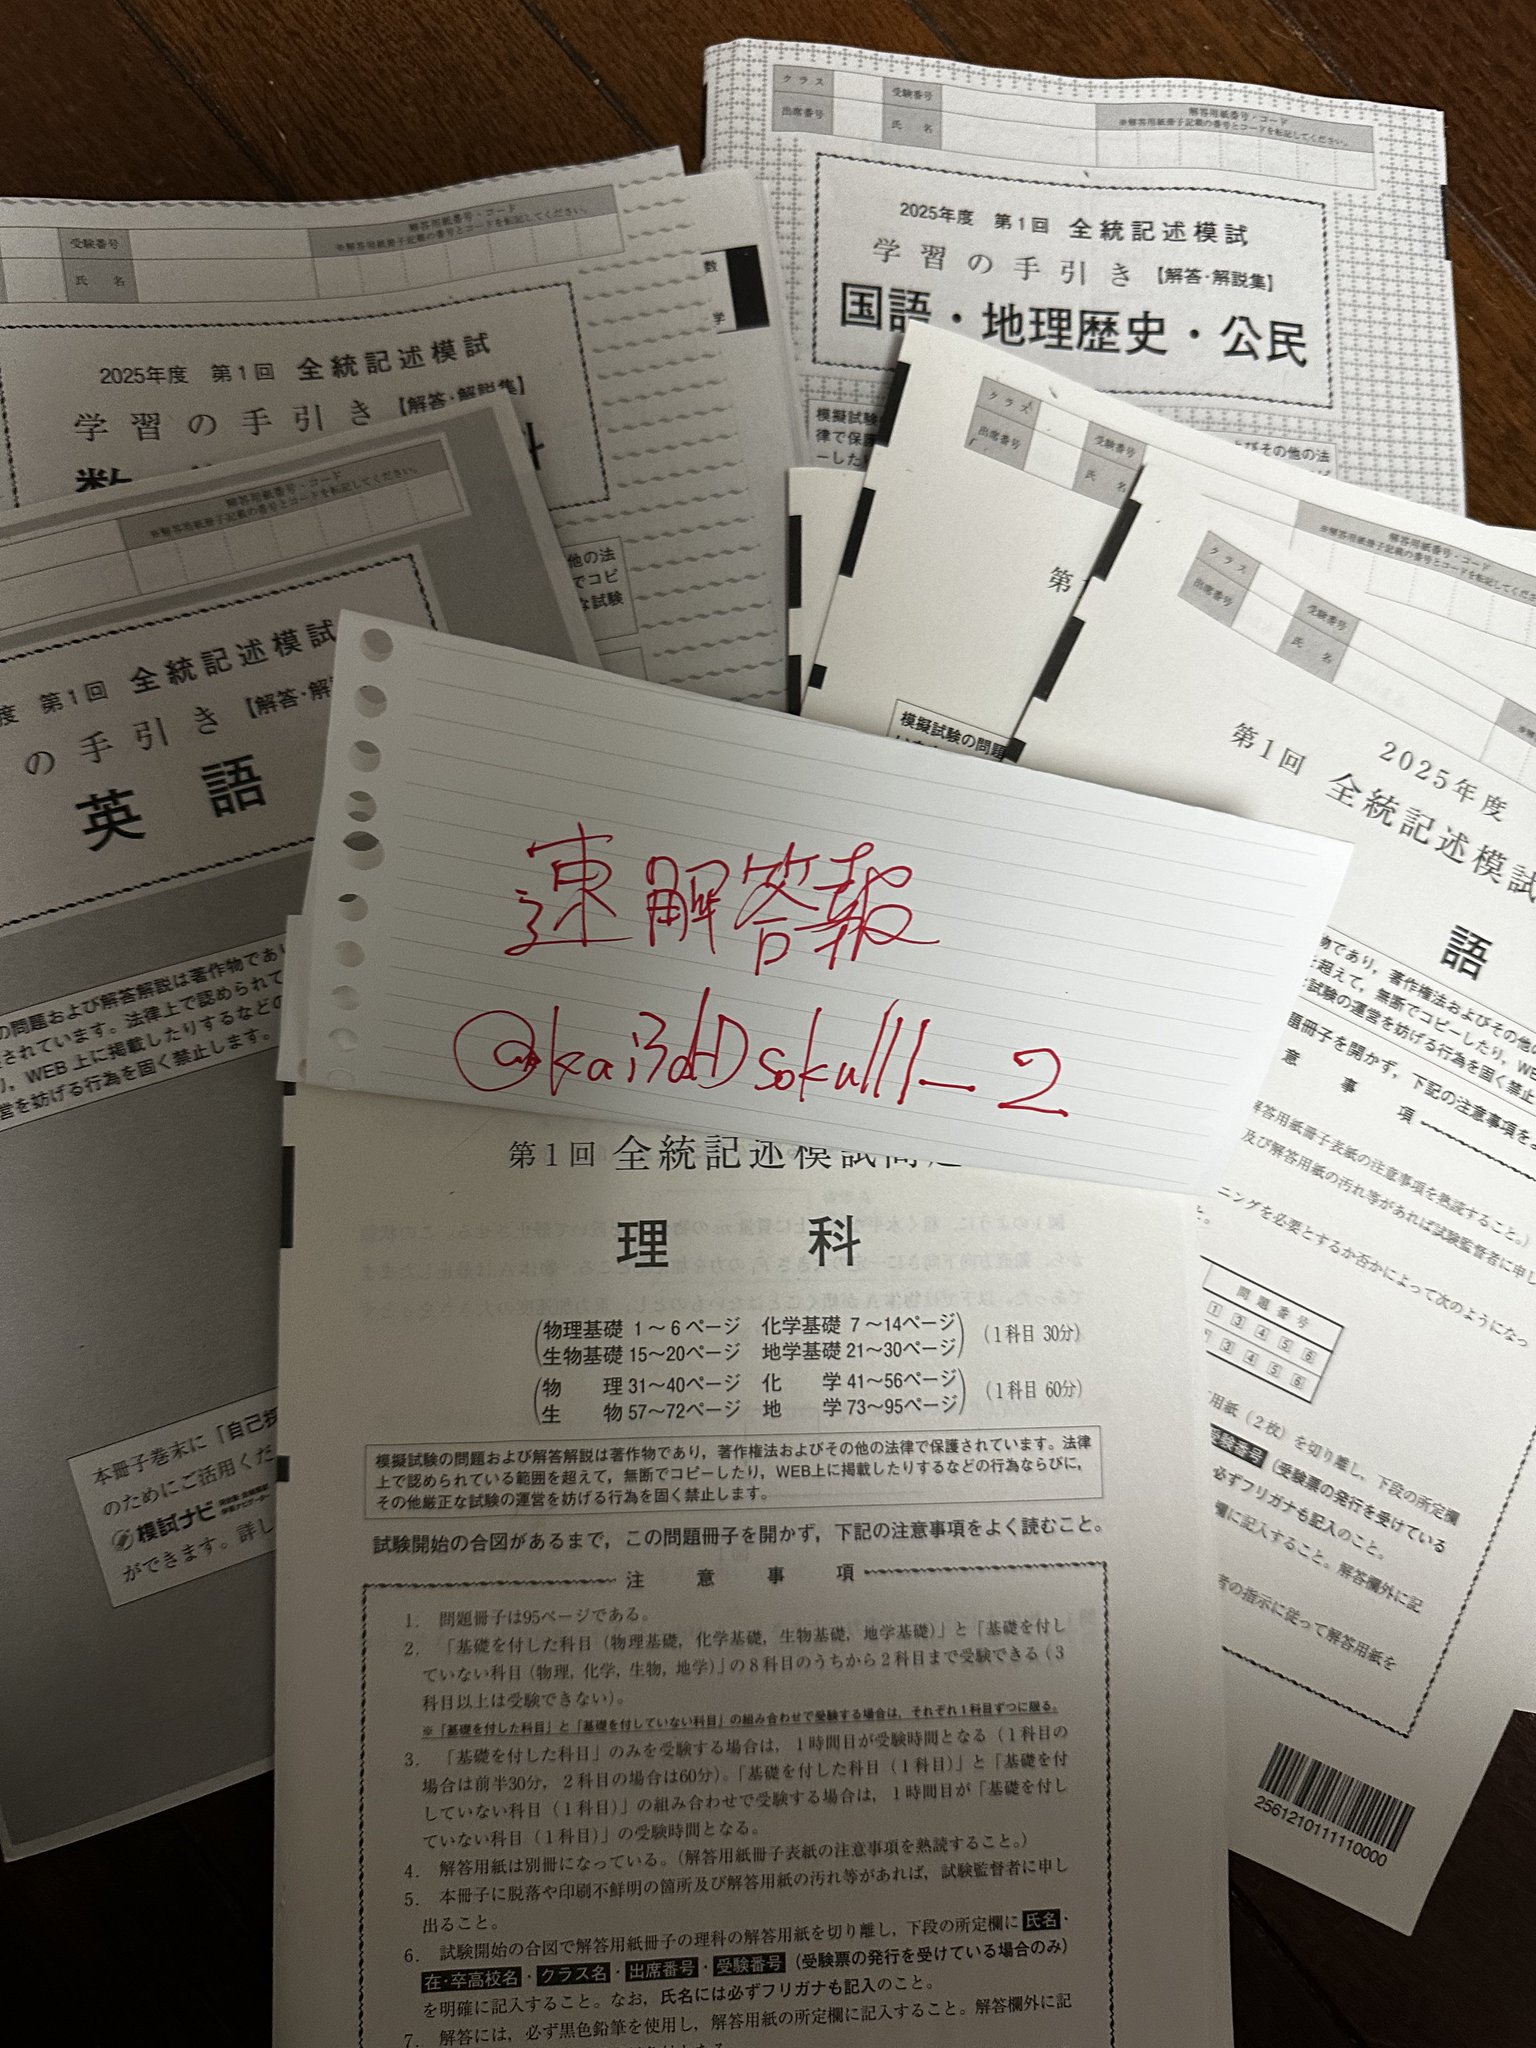 クラス
受験番号
解答用紙番号・コード
※解答用紙冊子記載の番号とコードを転記してください。
出席番号
氏 名
2025年度 第1回 全統記述模試
学習の手引き【解答・解説集】
国語・地理歴史・公民
模擬試験
律で保護
ーした
びその他の法
受験番号
解答用紙番号・コード
※解答用紙冊子記載の番号とコードを転記してください。
氏 名
数
学
2025年度 第1回 全統記述模試
学習の手引き【解答・解説集】
数
他の法
でコピ
な試験
解答用紙番号・コード
※解答用紙冊子記載の番号とコードを転記してください。
度 第1回 全統記述模試
の手引き【解答・解
英語
の問題および解答解説は著作物であり
されています。法律上で認められて
り，WEB上に掲載したりするなどの
営を妨げる行為を固く禁止します。
本冊子巻末に「自己採
のためにご活用くだ
模試ナビ
ができます。詳し
クラス
出席番号
受験番号
氏 名
第
模擬試験の問題
解答用紙番号・コード
※解答用紙冊子記載の番号とコードを転記してください。
クラス
出席番号
受験番号
氏 名
2025年度
第1回 全統記述模試
語
物であり，著作権法およびその他の
を超えて，無断でコピーしたり，WE
試験の運営を妨げる行為を固く禁止
題冊子を開かず，下記の注意事項をよ
意 事 項
解答用紙冊子表紙の注意事項を熟読すること。）
及び解答用紙の汚れ等があれば試験監督者に申し
ニングを必要とするか否かによって次のようになっ
問題番号
1 3 4 5 6
3 4 5 6
用紙（2枚）を切り離し，下段の所定欄
受験番号（受験票の発行を受けている
必ずフリガナも記入のこと。
欄に記入すること。解答欄外に記
者の指示に従って解答用紙を
2561210111110000
速解答報
@kai3dDsokulll_2
第1回 全統記述模試問題
理 科
物理基礎 1～6ページ 化学基礎 7～14ページ （1科目 30分）
生物基礎 15～20ページ 地学基礎 21～30ページ
物 理 31～40ページ 化 学 41～56ページ （1科目 60分）
生 物 57～72ページ 地 学 73～95ページ
模擬試験の問題および解答解説は著作物であり，著作権法およびその他の法律で保護されています。法律
上で認められている範囲を超えて，無断でコピーしたり，WEB上に掲載したりするなどの行為ならびに，
その他厳正な試験の運営を妨げる行為を固く禁止します。
試験開始の合図があるまで，この問題冊子を開かず，下記の注意事項をよく読むこと。
注 意 事 項
1. 問題冊子は95ページである。
2. 「基礎を付した科目（物理基礎，化学基礎，生物基礎，地学基礎）」と「基礎を付し
ていない科目（物理，化学，生物，地学）」の8科目のうちから2科目まで受験できる（3
科目以上は受験できない）。
※「基礎を付した科目」と「基礎を付していない科目」の組み合わせで受験する場合は，それぞれ1科目ずつに限る。
3. 「基礎を付した科目」のみを受験する場合は，1時間目が受験時間となる（1科目の
場合は前半30分，2科目の場合は60分）。「基礎を付した科目（1科目）」と「基礎を付
していない科目（1科目）」の組み合わせで受験する場合は，1時間目が「基礎を付し
ていない科目（1科目）」の受験時間となる。
4. 解答用紙は別冊になっている。（解答用紙冊子表紙の注意事項を熟読すること。）
5. 本冊子に脱落や印刷不鮮明の箇所及び解答用紙の汚れ等があれば，試験監督者に申し
出ること。
6. 試験開始の合図で解答用紙冊子の理科の解答用紙を切り離し，下段の所定欄に 氏名・
在・卒高校名・クラス名・出席番号・受験番号（受験票の発行を受けている場合のみ）
を明確に記入すること。なお，氏名には必ずフリガナも記入のこと。
7. 解答には，必ず黒色鉛筆を使用し，解答用紙の所定欄に記入すること。解答欄外に記